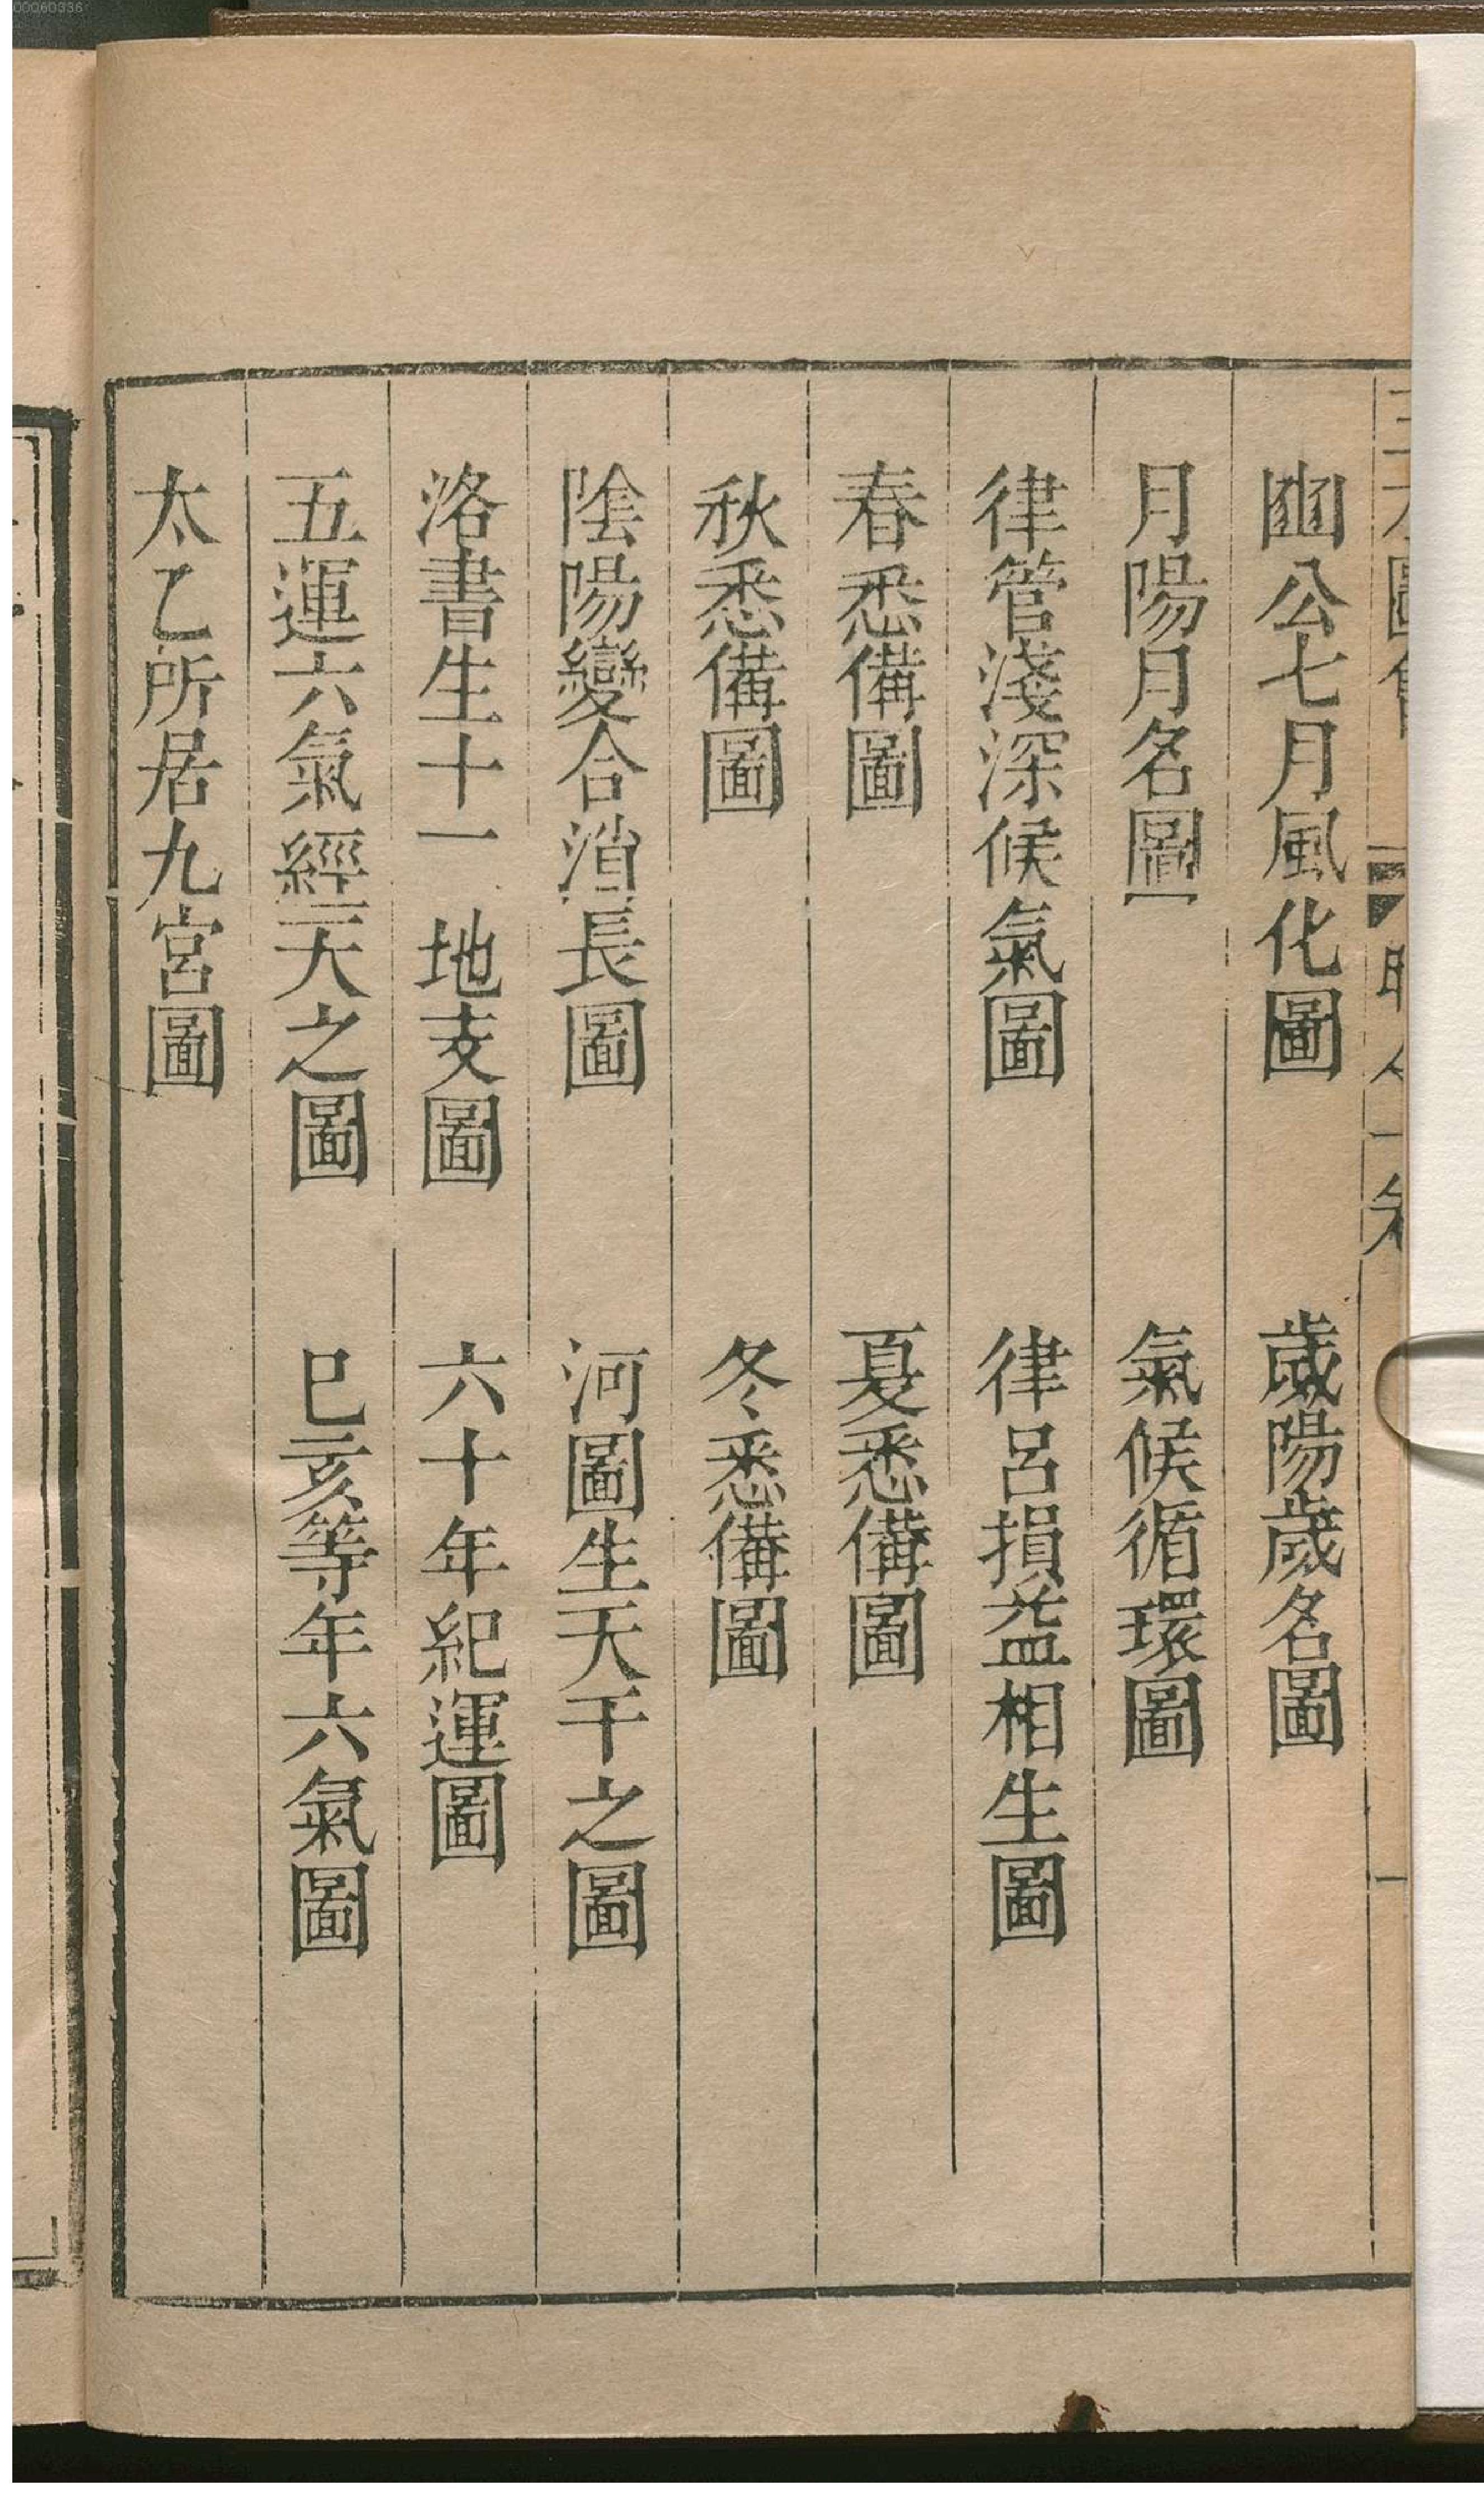 豳公七月風化圖 歲陽歲名圖
月陽月名圖 氣候循環圖
律管淺深候氣圖 律呂損益相生圖
春悉備圖 夏悉備圖
秋悉備圖 冬悉備圖
陰陽變合消長圖 河圖生天干之圖
洛書生十一地支圖 六十年紀運圖
五運六氣經天之圖 巳亥等年六氣圖
太乙所居九宮圖
00060336